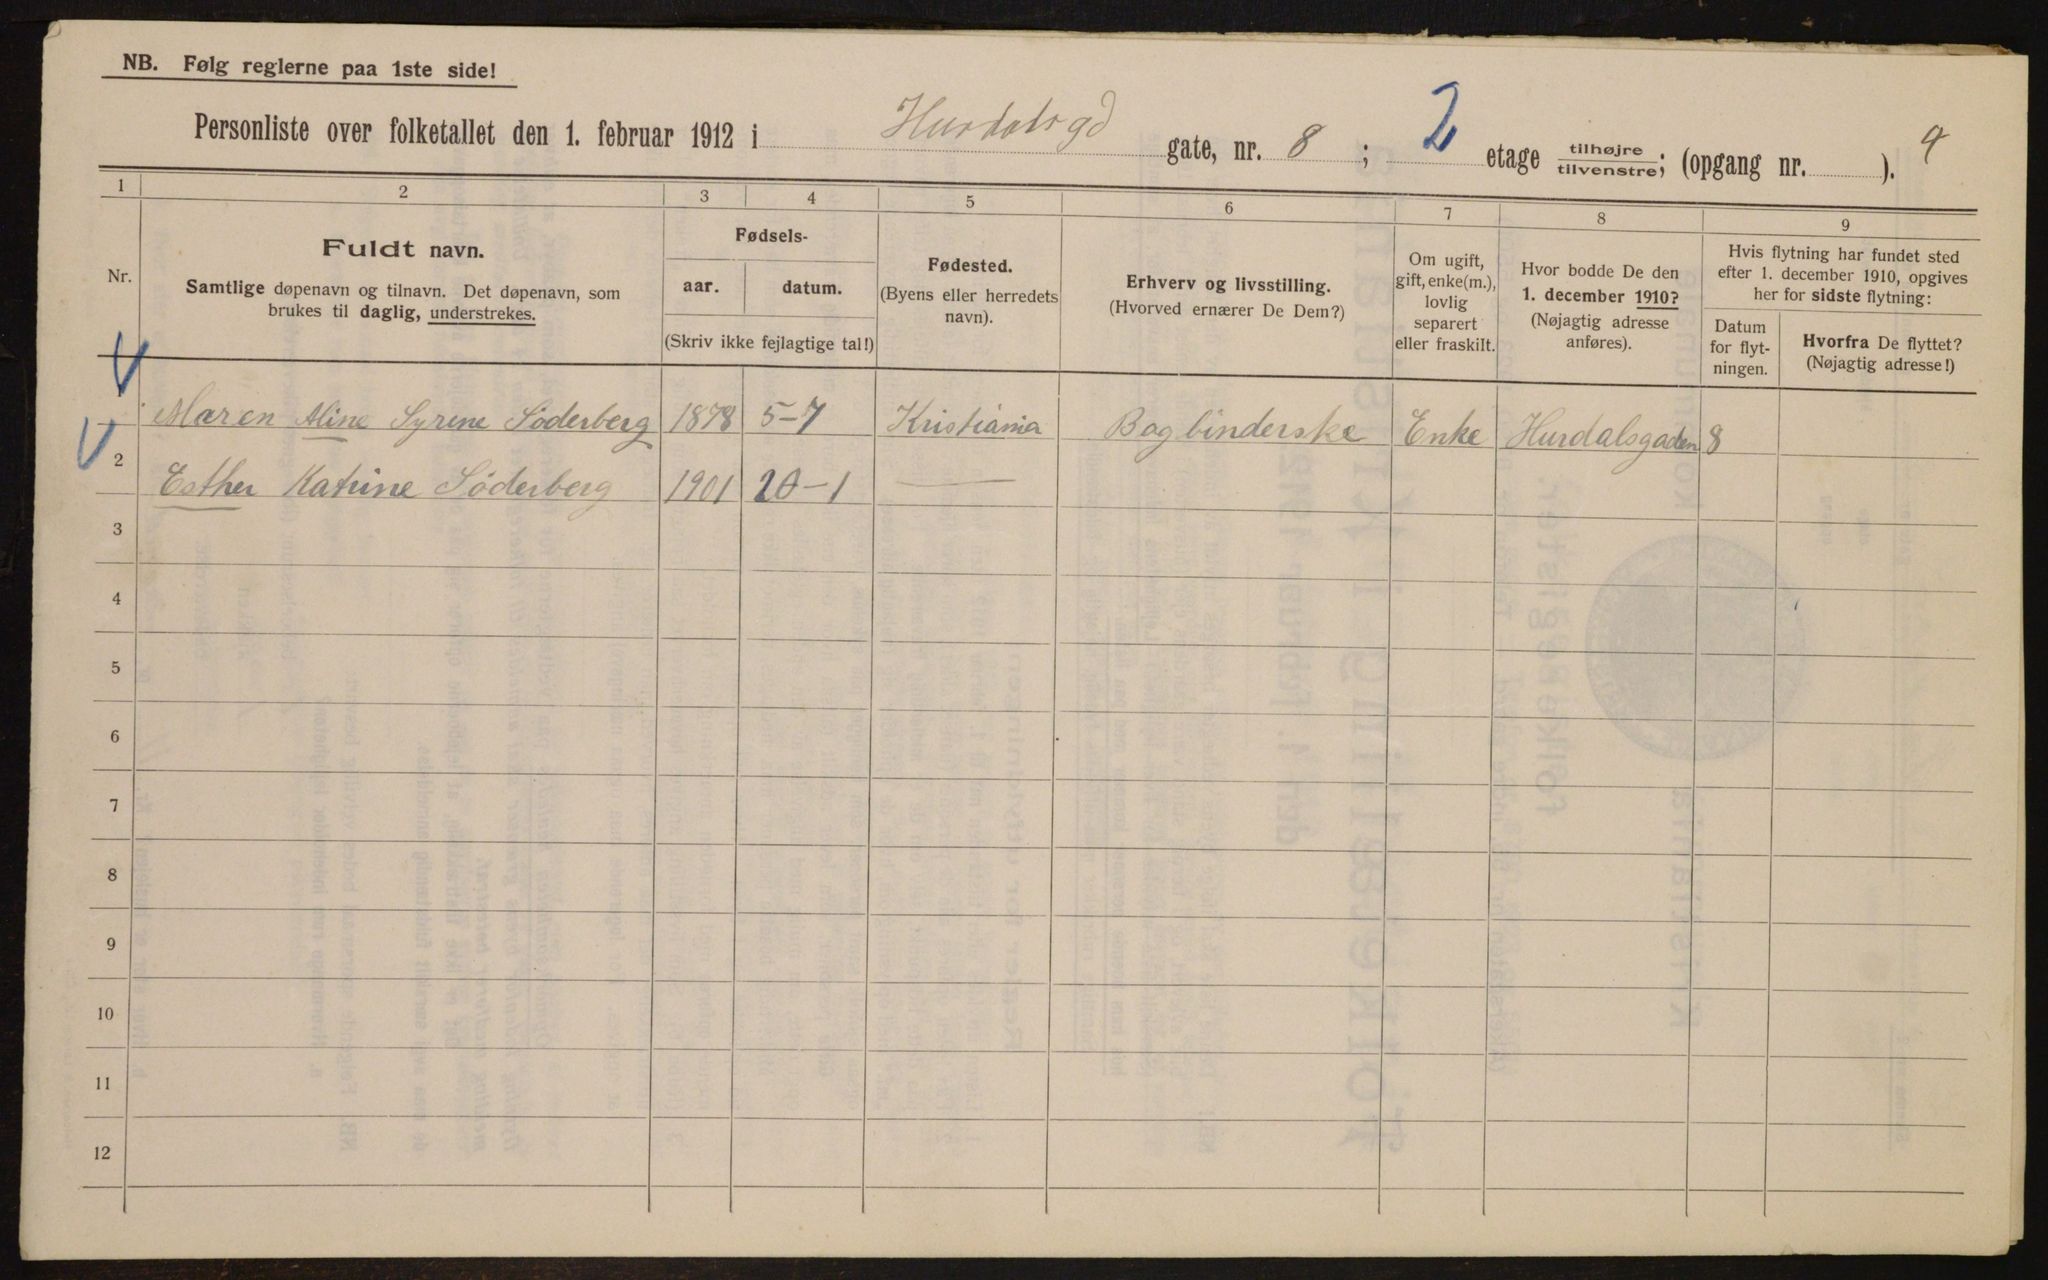 NB. Følg reglerne paa 1ste side!
Personliste over folketallet den 1. februar 1912 i Hurdalsgd gate, nr. 8 ; 2 etage tilhøjre/tilvenstre; (opgang nr. ). 4
1 2 3 4 5 6 7 8 9
Nr.
Fuldt navn.
Samtlige døpenavn og tilnavn. Det døpenavn, som
brukes til daglig, understrekes.
Fødsels-
aar. datum.
(Skriv ikke fejlagtige tal!)
Fødested.
(Byens eller herredets
navn).
Erhverv og livsstilling.
(Hvorved ernærer De Dem?)
Om ugift,
gift, enke(m.),
lovlig
separert
eller fraskilt.
Hvor bodde De den
1. december 1910?
(Nøjagtig adresse
anføres).
Hvis flytning har fundet sted
efter 1. december 1910, opgives
her for sidste flytning:
Datum
for flyt-
ningen.
Hvorfra De flyttet?
(Nøjagtig adresse!)
Maren Aline Syrene Söderberg 1878 5-7 Kristiania Bogbinderske Enke Hurdalsgaden 8
2 Esther Katrine Söderberg 1901 20-1 —
3
4
5
6
7
8
9
10
11
12